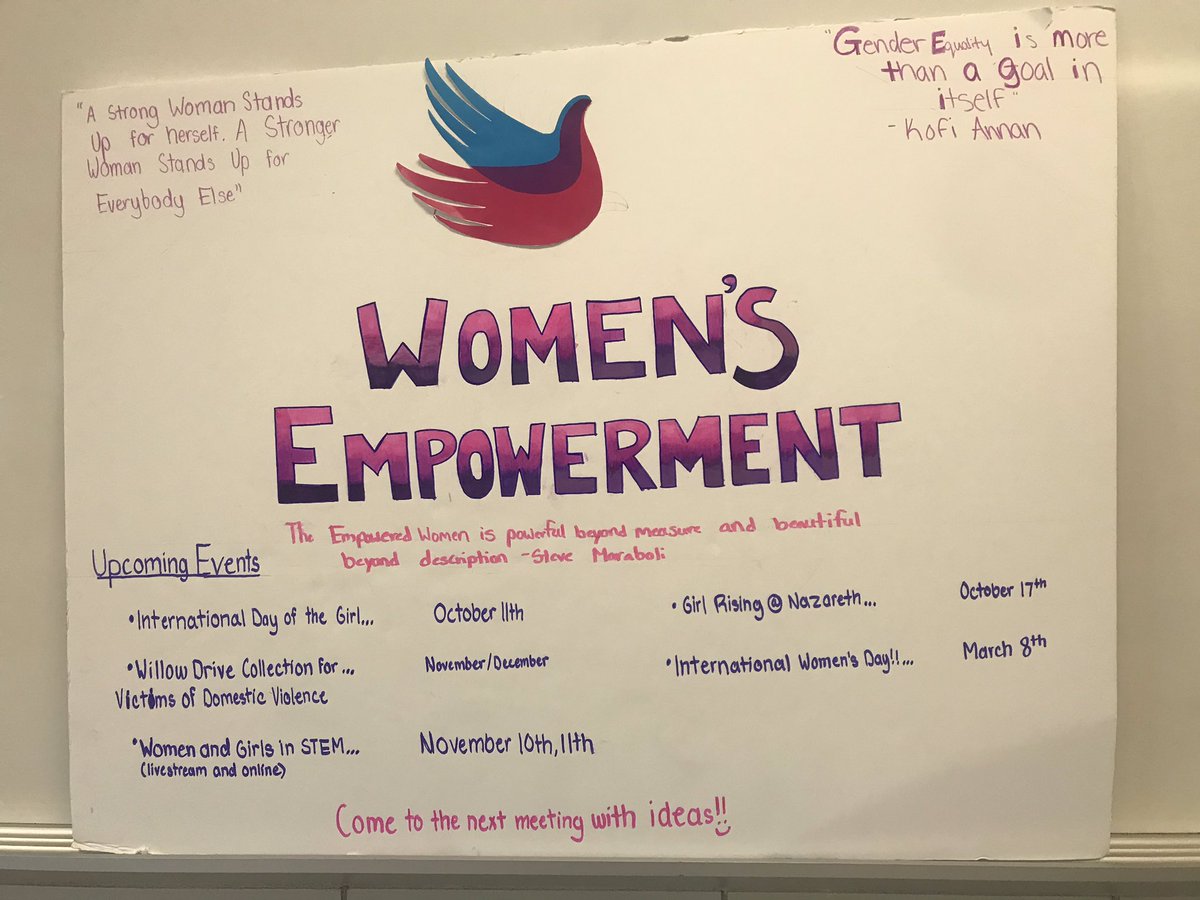 "A Strong Woman Stands
Up for herself. A Stronger
Woman Stands Up for
Everybody Else"
"Gender Equality is more
than a goal in
itself"
- Kofi Annan
WOMEN'S
EMPOWERMENT
The Empowered Women is powerful beyond measure and beautiful
beyond description -Steve Maraboli
Upcoming Events
•International Day of the Girl... October 11th
•Willow Drive Collection for... November/December
Victims of Domestic Violence
•Women and Girls in STEM... November 10th, 11th
(livestream and online)
•Girl Rising @ Nazareth... October 17th
•International Women's Day!!... March 8th
Come to the next meeting with ideas!!